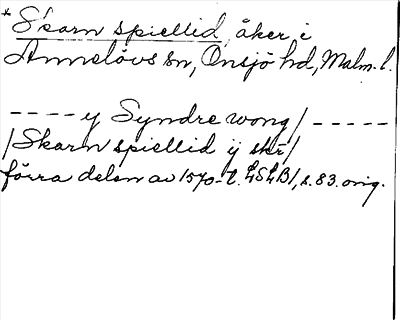 * Skarn spiellid, åker, i
Annelövs sn, Onsjö hd, Malm. l.
---- y Syndre wong / -----
/ Skarn spiellid ij skr /
förra delen av 1570-t. LSLB1, s. 83. orig.